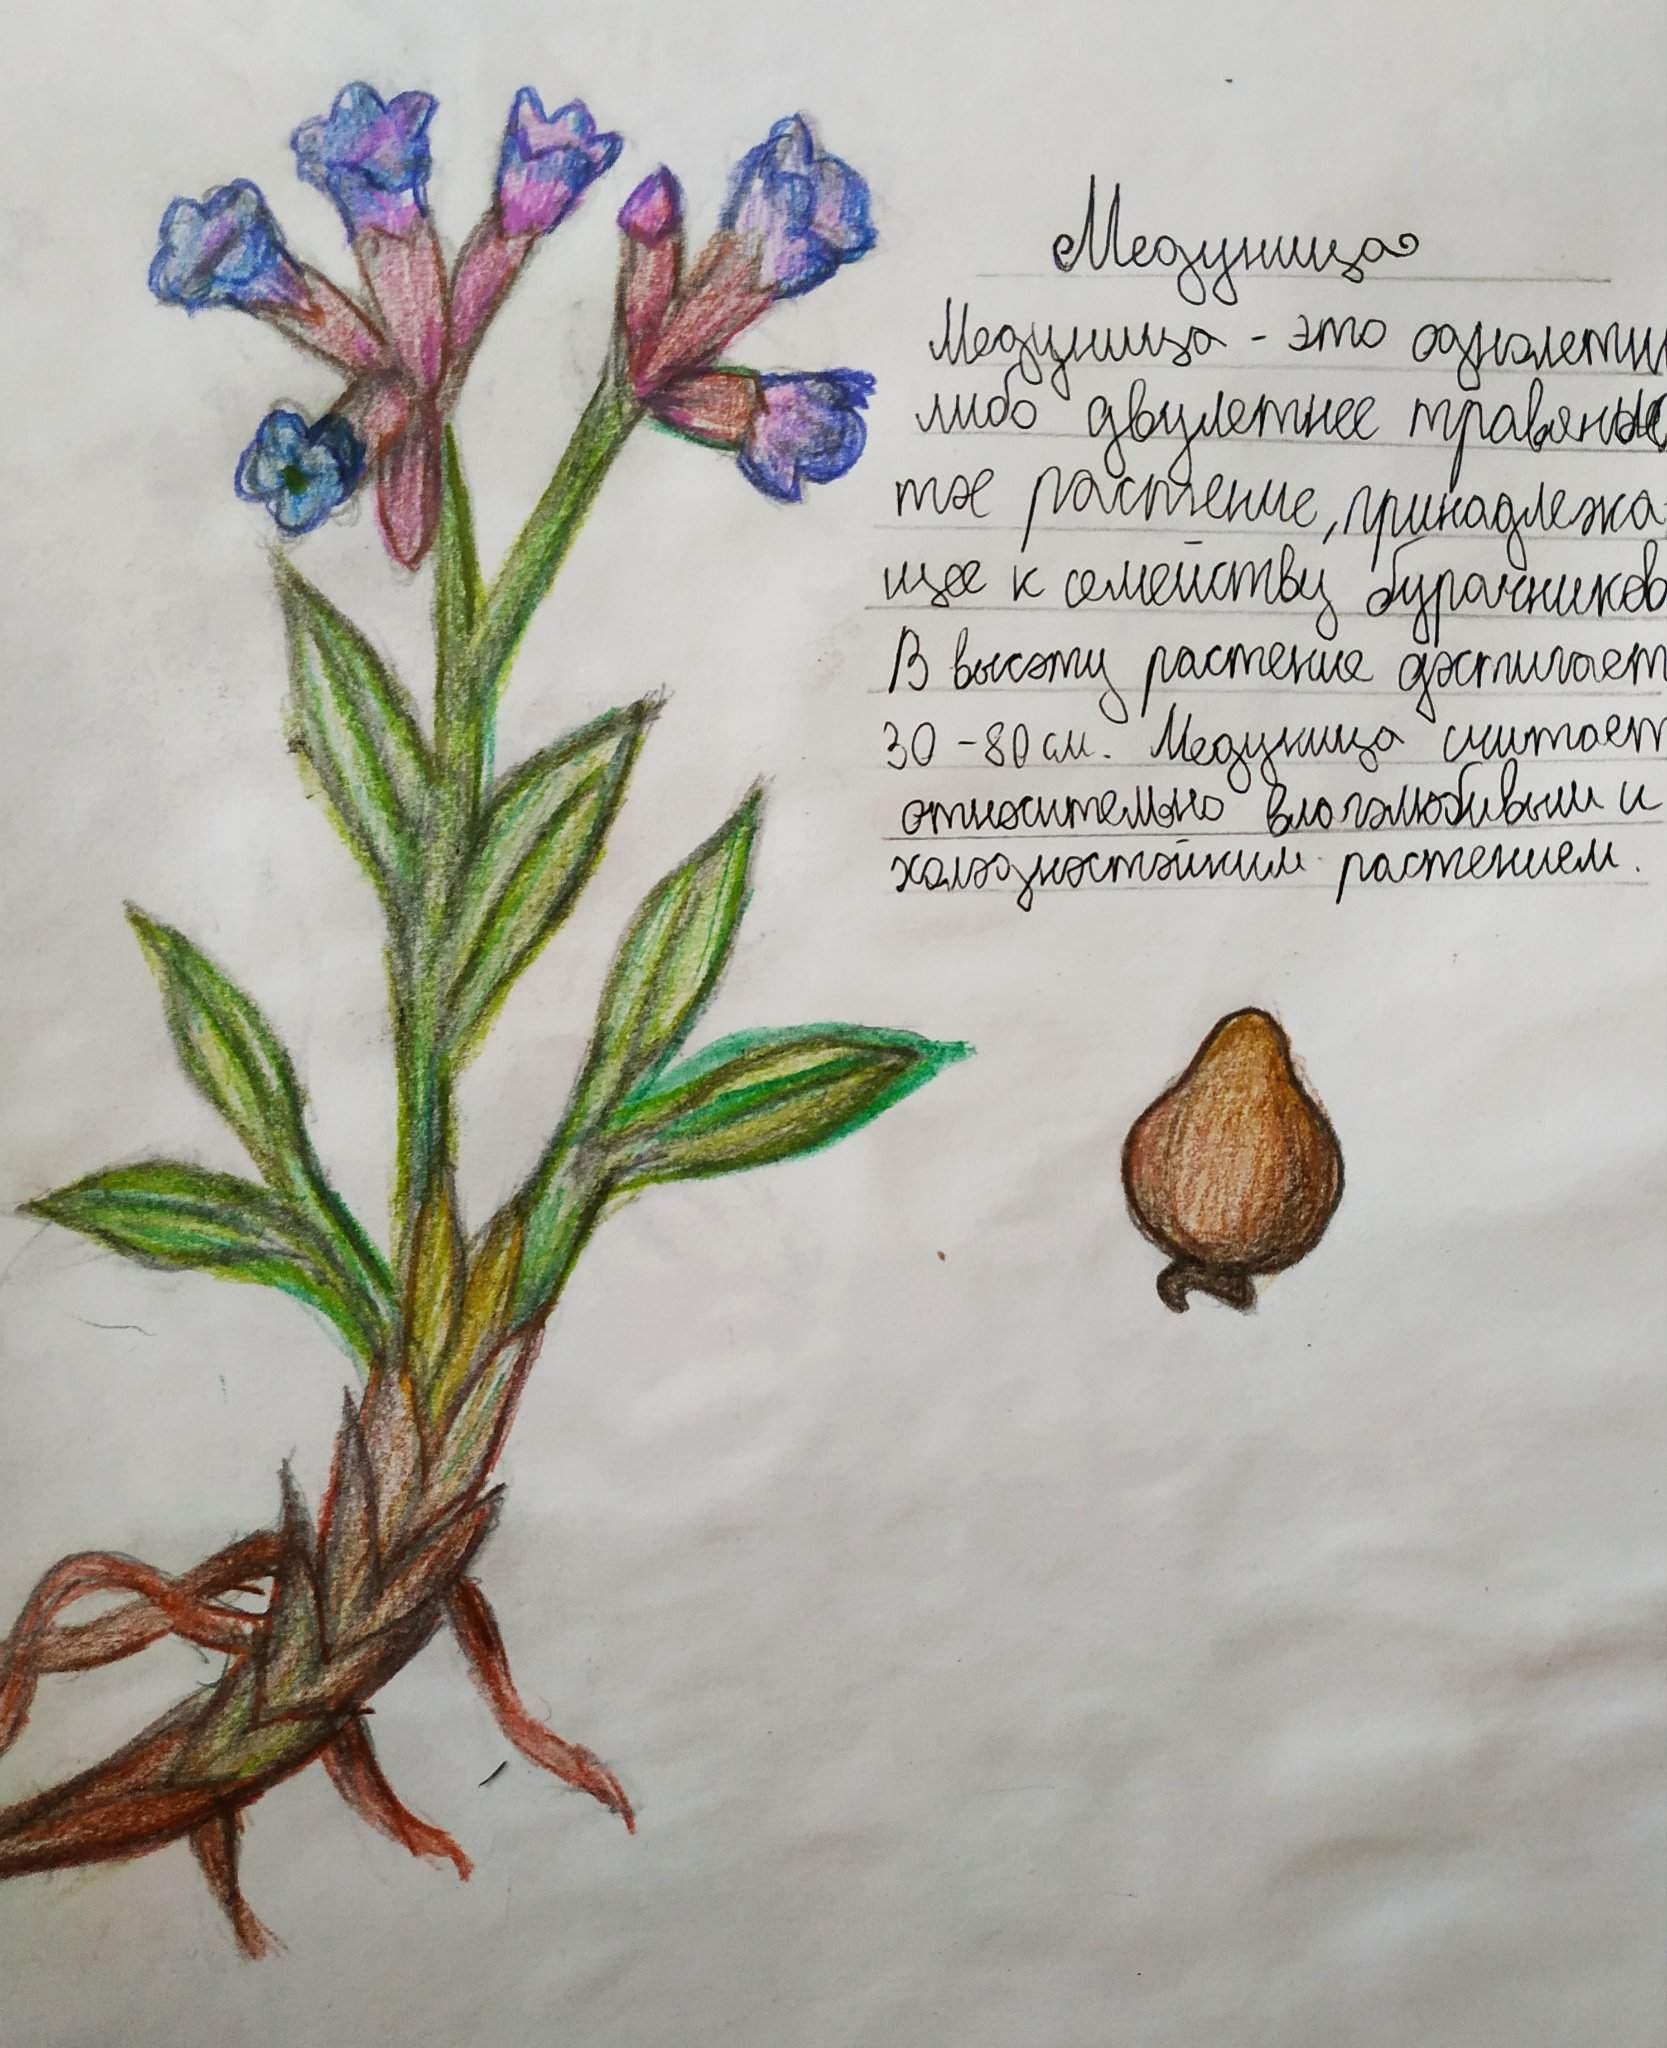 Медуница
Медуница - это однолетн
либо двулетнее травянис
тое растение, принадлежа-
щее к семейству бурачников
В высоту растение достигает
30-80см. Медуница считает
относительно влаголюбивым и
холодностойким растением.